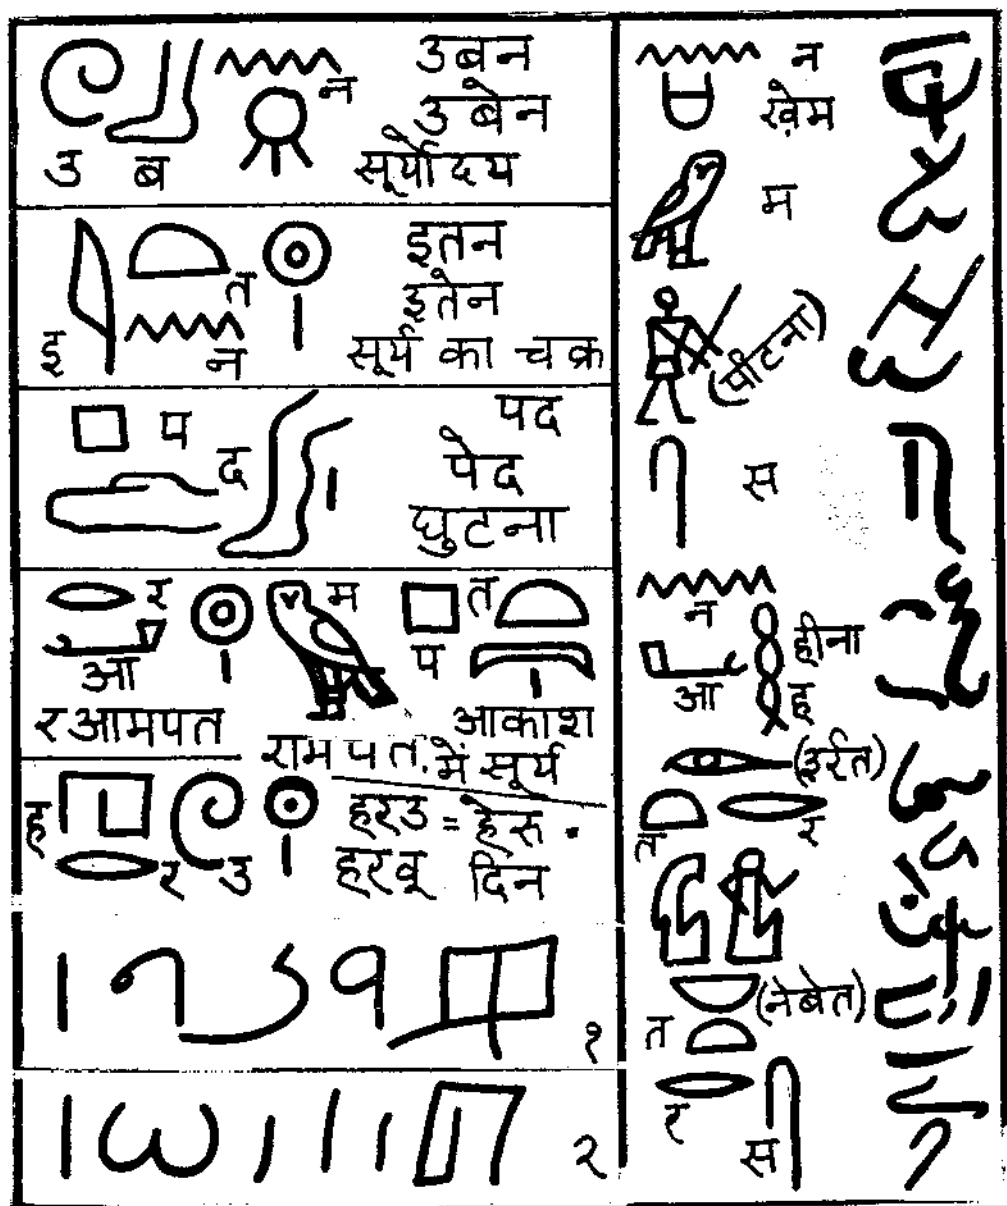 उबन
उबेन
सूर्योदय
उ ब न
इतन
इतेन
सूर्य का चक्र
इ त न
पद
पेद
घुटना
प द
र म त
आ प
रआमपत आकाश
रामपत. में सूर्य
ह र उ
हरउ = हेरु
हरवू दिन
१
२
न
ख़ेम
म
(पीटना)
स
न
हीना
आ ह
(इर्रत)
त र
(नेबेत)
त
र
स